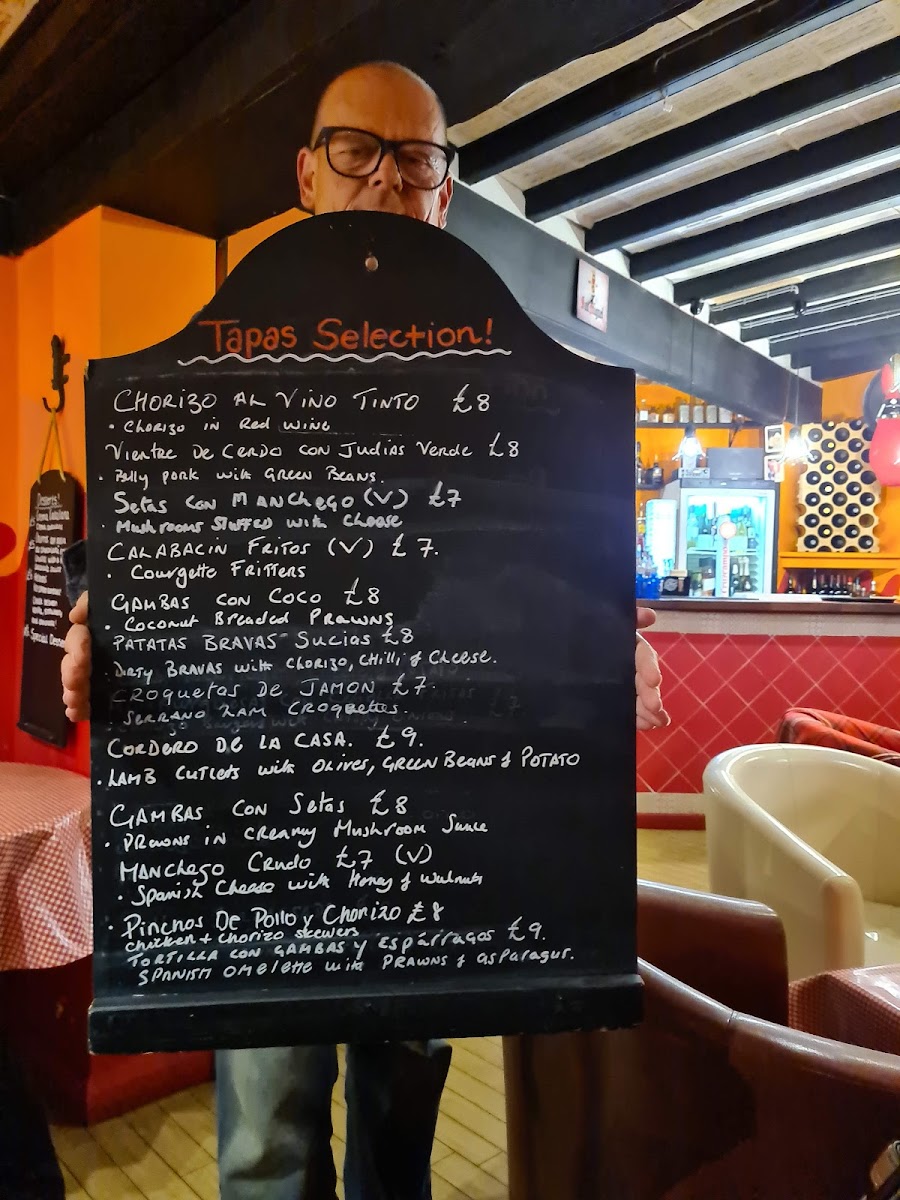 Tapas Selection!
CHORIZO AL VINO TINTO £8
• CHORIZO IN Red WINE
Vientre De CERDO CON JUDIAS Verde £8
• Belly pork with GREEN BEANS.
Setas CON MANCHEGO (V) £7
• Mushrooms Stuffed with Cheese
CALABACIN FRITOS (V) £7.
• COURGETTE FRITTERS
GAMBAS CON COCO £8
• COCONUT Breaded PRAWNS
PATATAS BRAVAS SUCIAS £8
• DIRTY BRAVAS with CHORIZO, CHILLI & Cheese.
CROQUETAS DE JAMON £7
• SERRANO HAM CROQUETTES.
CORDERO DE LA CASA. £9.
• LAMB CUTLETS with OLIVES, GREEN BEANS & POTATO
GAMBAS CON Setas £8
• PRAWNS IN CREAMY Mushroom Sauce
MANCHEGO CRUDO £7 (V)
• Spanish Cheese with Honey & Walnuts
• Pinchos De Pollo y Chorizo £8
Chicken + chorizo skewers
TORTILLA CON GAMBAS Y ESPÁRRAGOS £9.
SPANISH OMELETTE with PRAWNS & asparagus.
Desserts!
Special Dessert